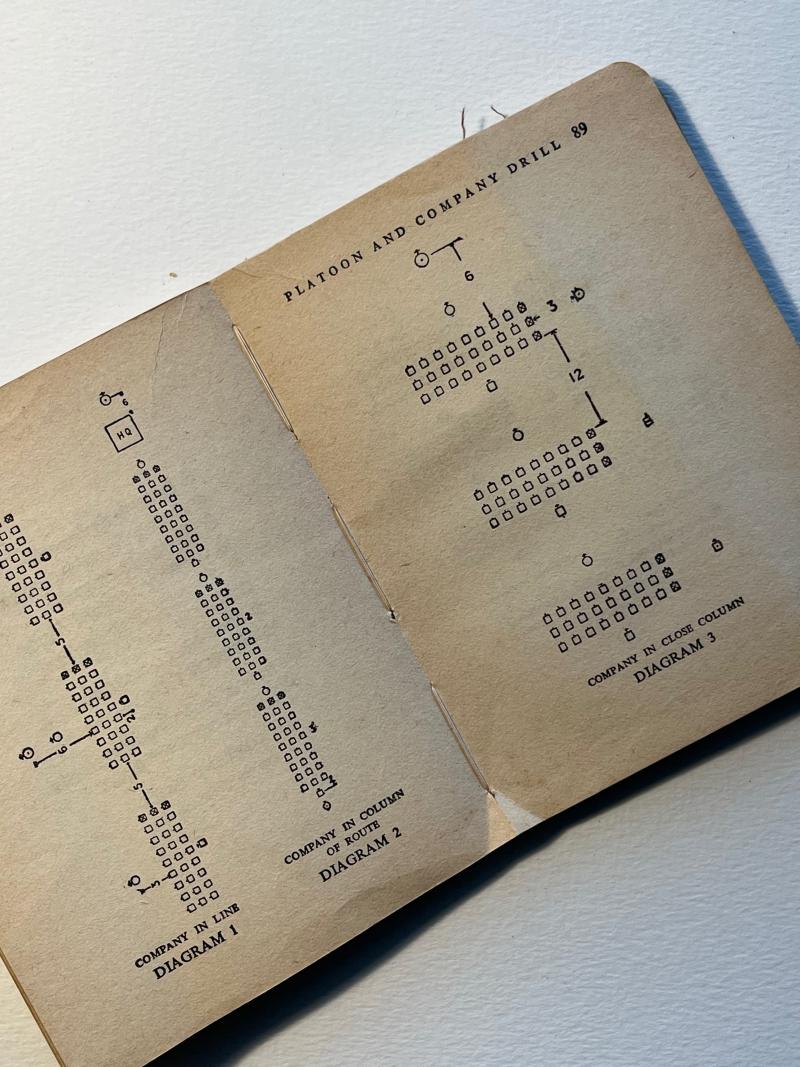 6
HQ
5
2
6
2
5
5
COMPANY IN LINE
DIAGRAM 1
COMPANY IN COLUMN
OF ROUTE
DIAGRAM 2
PLATOON AND COMPANY DRILL 89
6
3
12
COMPANY IN CLOSE COLUMN
DIAGRAM 3